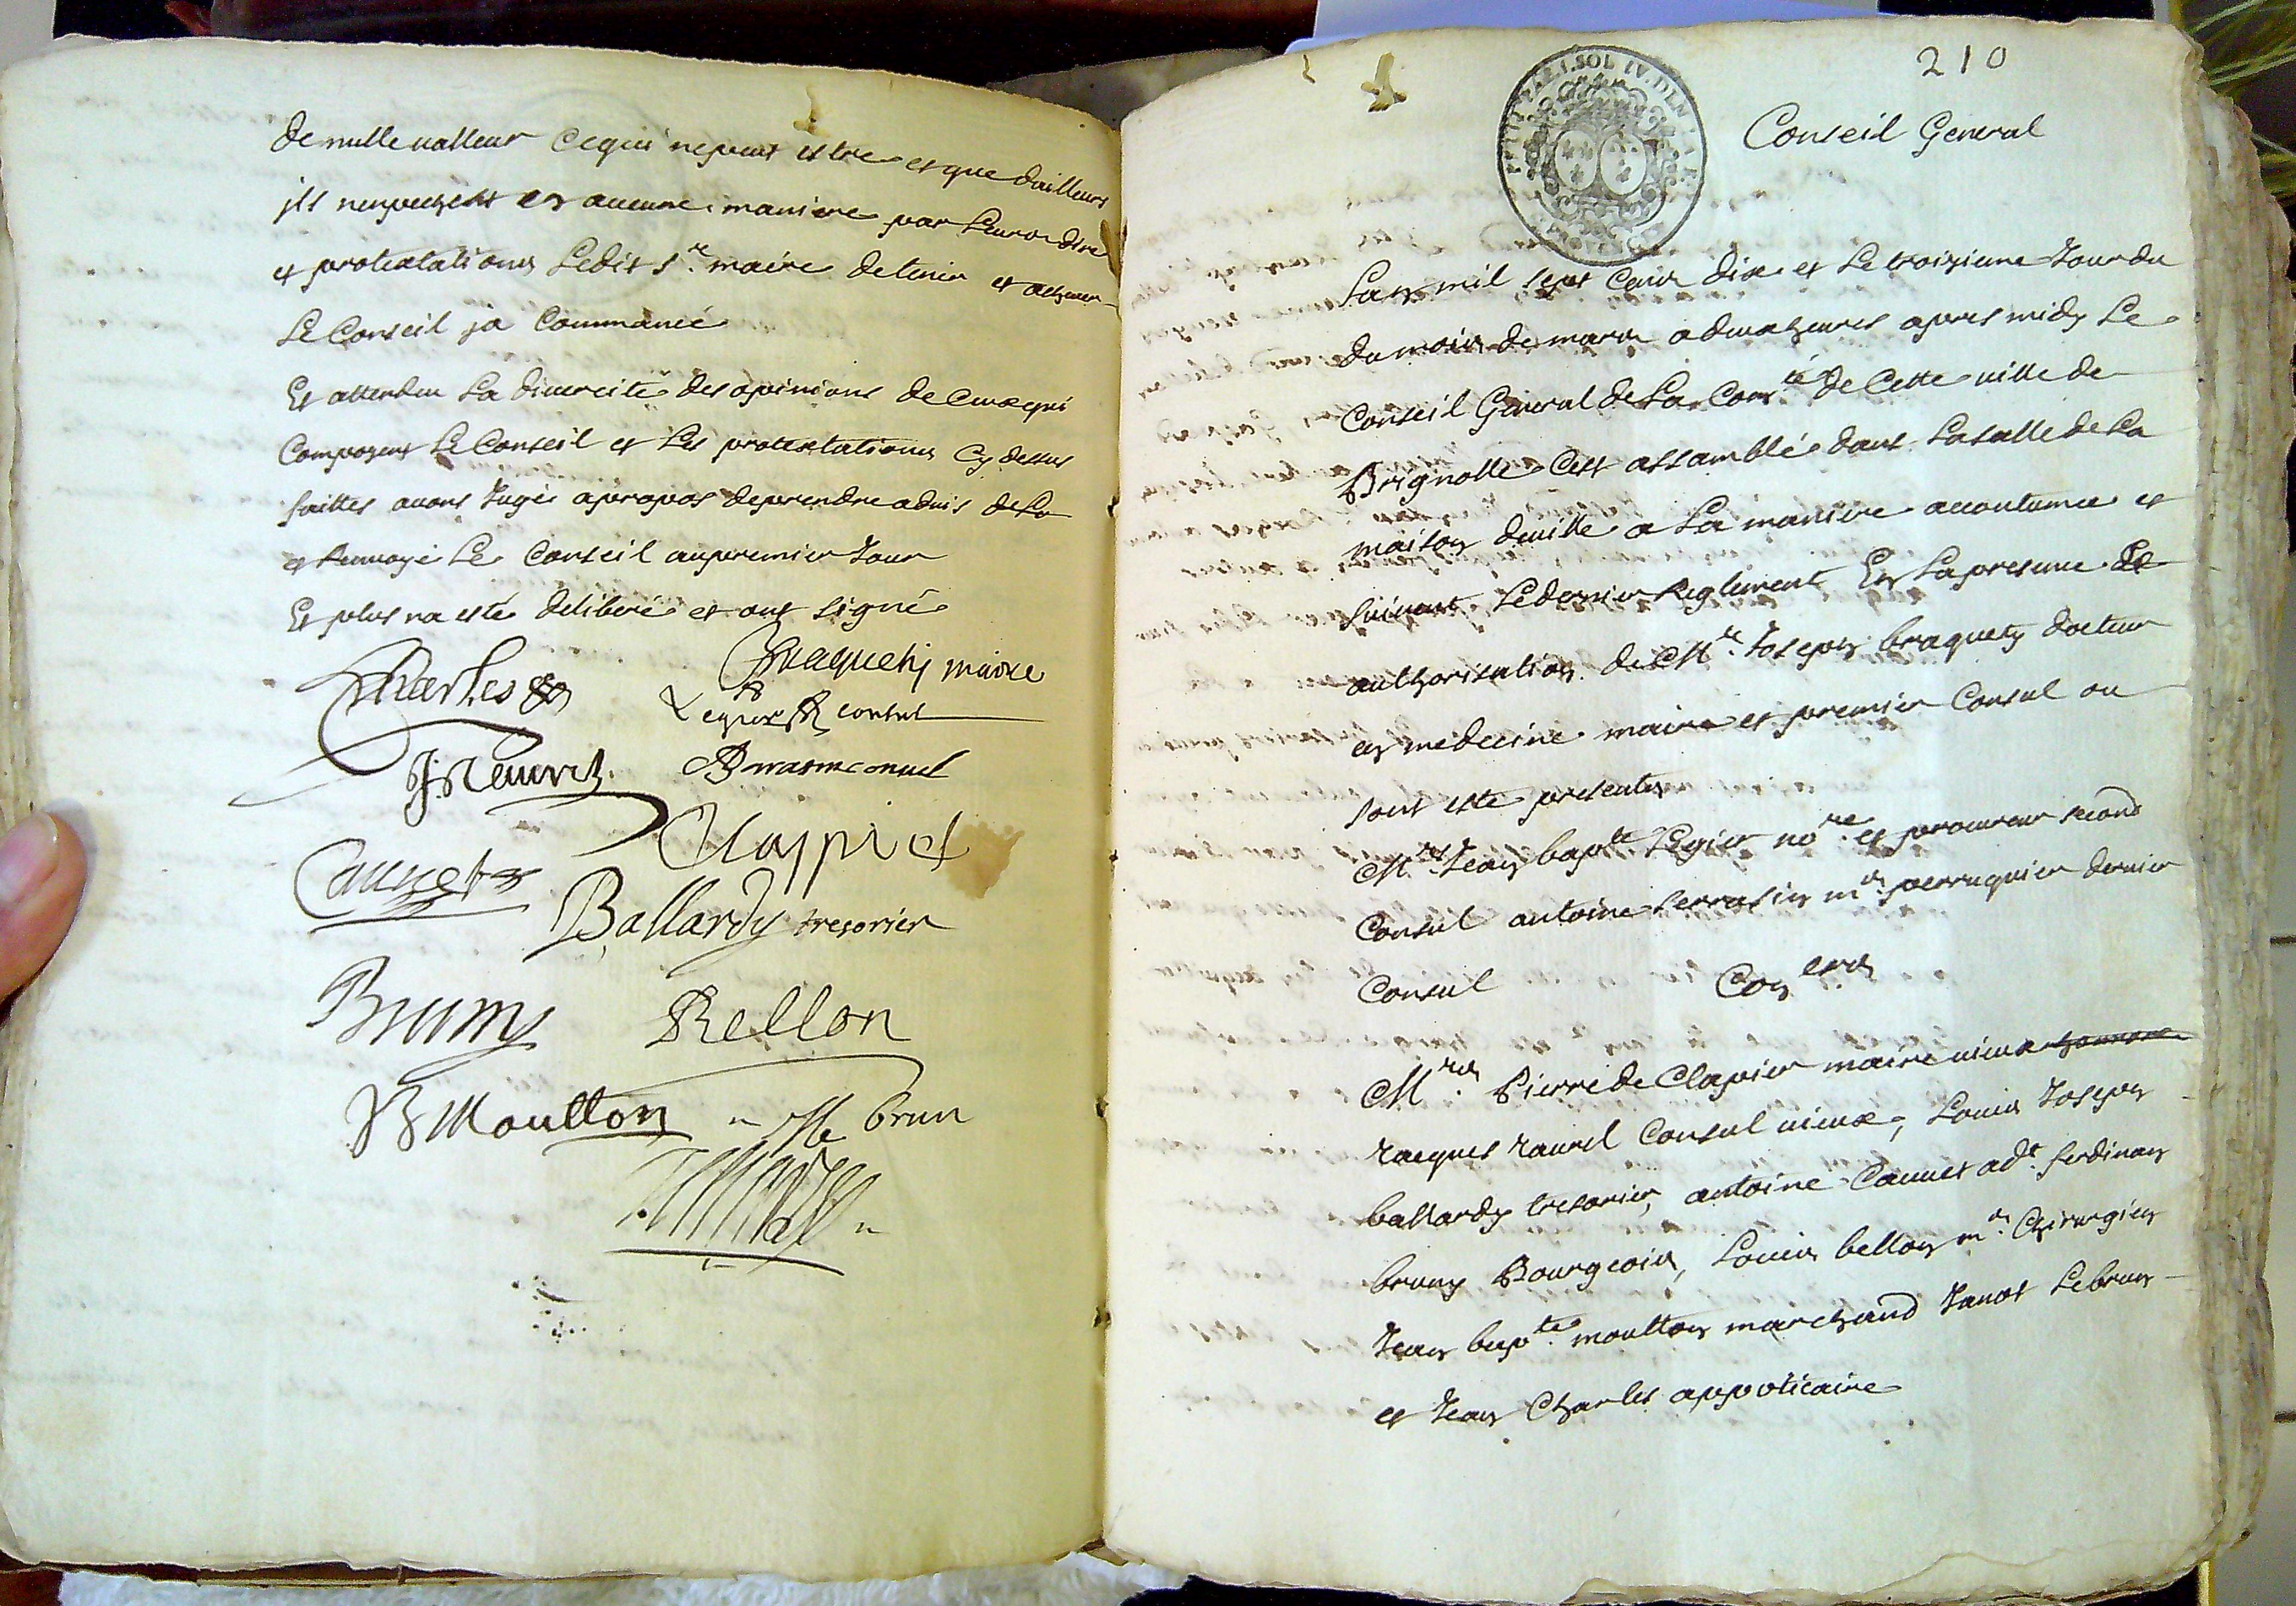 de nulle valleur ce qui ne peut estre et que dailleurs
ils nempechent en aucune maniere par leurs dire
et protestations ledit sr. maire de tenir et achever
le Conseil ja Commancé
Et attendu la divercité des opinions de Ceux qui
Composent le Conseil et les protestations Cy dessus
faittes avons Jugé apropos de prendre advis de La
et Renvoyé le Conseil au premier Jour
Et plus na esté deliberé et ont signé
Charles
Braquety maire
Legier consul
Cannet
Clappier
Ballardy tresorier
Bruny
Bellon
JB Moutton
Le brun
210
Conseil General
Lan mil sept Cens dix et le troizieme Jour du
du mois de mars a deux heures apres midy le
Conseil General de la Comté de Cette ville de
Brignolle Cest assamblé dans la salle de la
maison de ville a la maniere accoutumée et
suivant le dernier Reglement En la presence et
authorisation de Mre. Joseph braquety docteur
en medecine maire et premier Consul ou
sont esté presents
Mres Jean bapte legier nore. et procureur second
Consul antoine serrasin me. perruquier dernier
Consul
Coners
Mrs. Pierre de Clapier maire vieux
Jacques raurel Consul vieux, Louis Joseph
ballardy tresorier, antoine Cannet adt. ferdinan
bruny Bourgeois, Louis bellon me. Chirurgien
Jean bapte. moutton marchand Janot Lebrun
et Jean Charles appoticaire